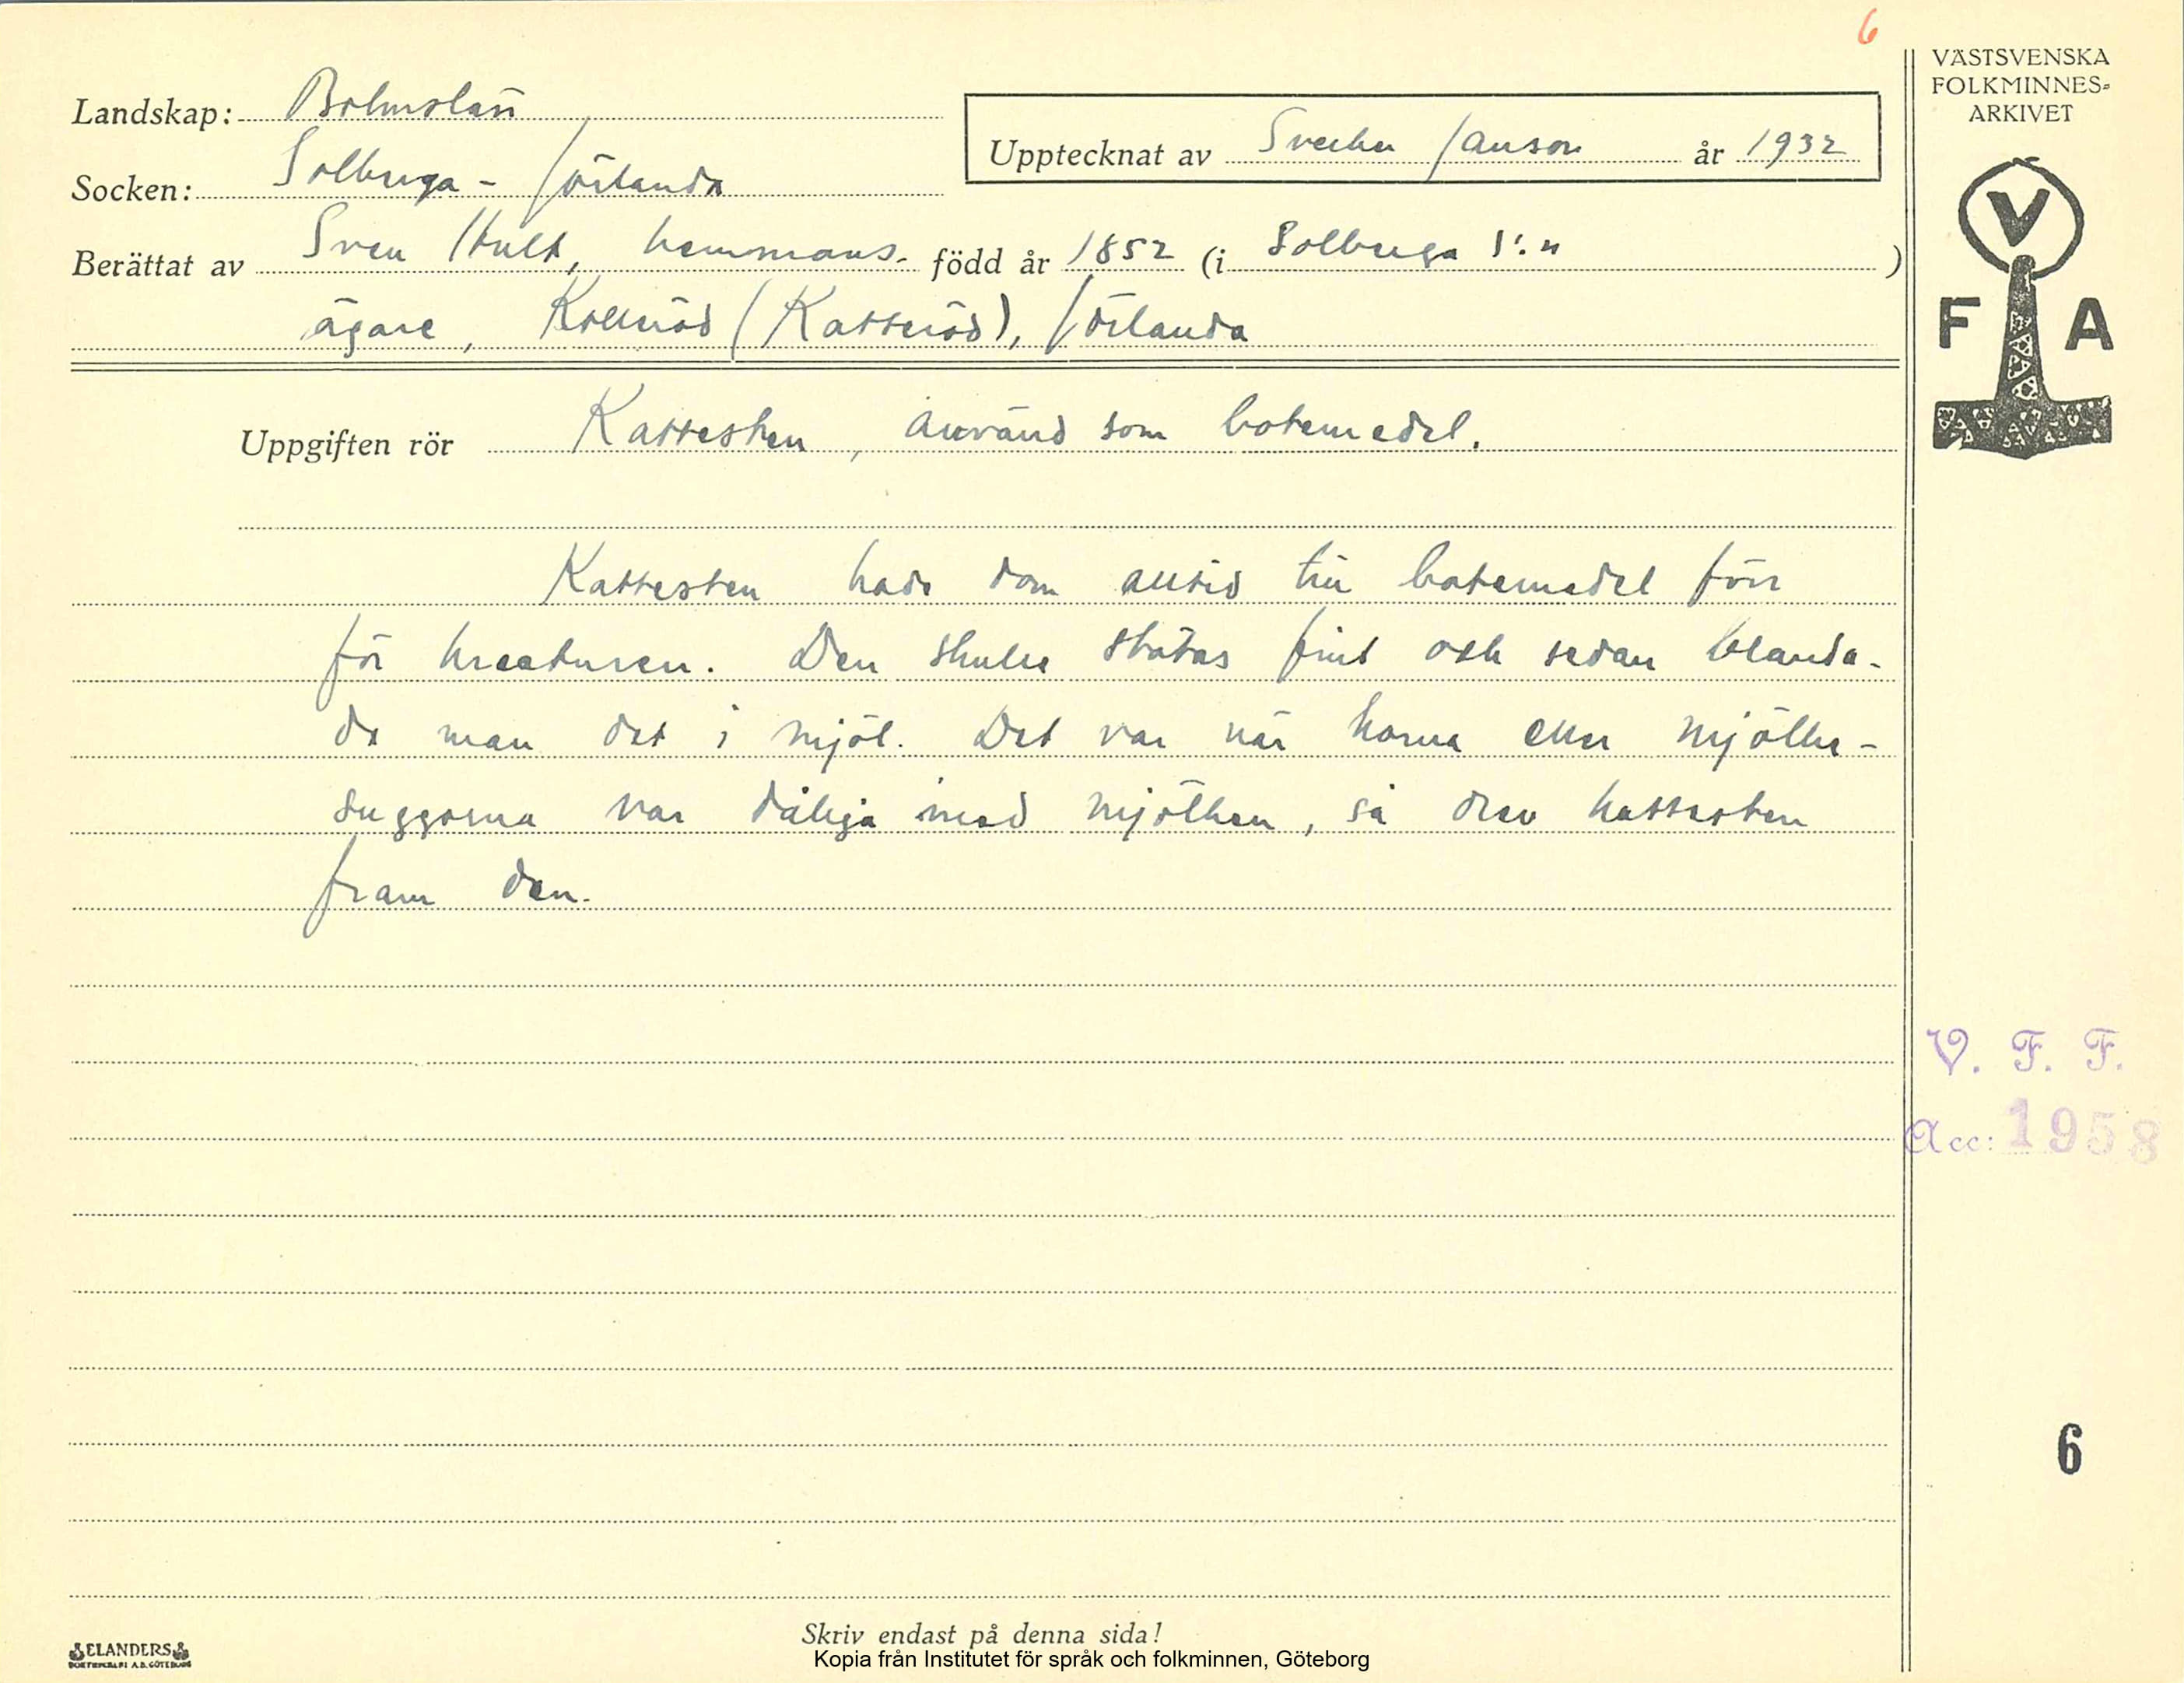 6
VÄSTSVENSKA
FOLKMINNES-
ARKIVET
Landskap: Bohuslän
Upptecknat av Sverker Janson år 1932
Socken: Solberga - Jörlanda
Berättat av Sven Hult, hemmans- född år 1852 (i Solberga s:n)
ägare, Kollröd (Katteröd), Jörlanda
V
F A
Uppgiften rör Kattesten, använd som botemedel.
Kattesten hade dom alltid till botemedel förr
för kreaturen. Den skulle stötas fint och sedan blanda-
de man det i mjöl. Det var när korna eller mjölke-
suggorna var dåliga med mjölken, så drev kattesten
fram den.
V. F. F.
Acc: 1958
6
Skriv endast på denna sida!
ELANDERS
BOKTRYCKERI A.B. GÖTEBORG
Kopia från Institutet för språk och folkminnen, Göteborg